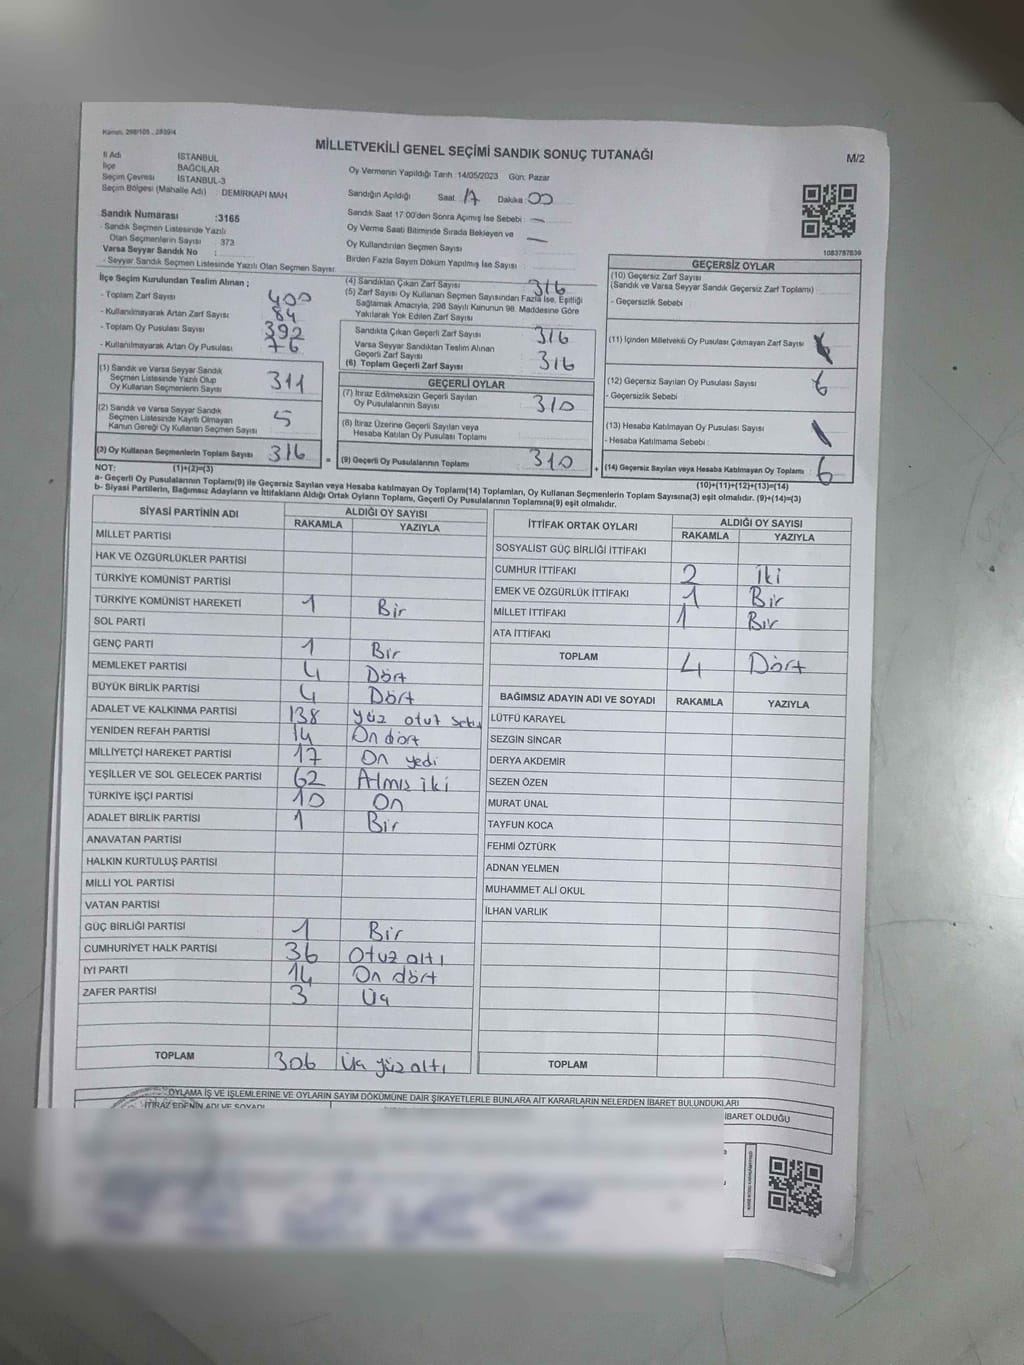 Kanun: 298/105 , 2839/4
MİLLETVEKİLİ GENEL SEÇİMİ SANDIK SONUÇ TUTANAĞI
M/2
İl Adı İSTANBUL
İlçe BAĞCILAR
Seçim Çevresi İSTANBUL-3
Seçim Bölgesi (Mahalle Adı) : DEMİRKAPI MAH
Sandık Numarası :3165
- Sandık Seçmen Listesinde Yazılı
Olan Seçmenlerin Sayısı : 373
Varsa Seyyar Sandık No :
- Seyyar Sandık Seçmen Listesinde Yazılı Olan Seçmen Sayısı:
Oy Vermenin Yapıldığı Tarih :14/05/2023 Gün: Pazar
Sandığın Açıldığı Saat: 17 Dakika: 00
Sandık Saat 17:00'den Sonra Açılmış İse Sebebi : —
Oy Verme Saati Bitiminde Sırada Bekleyen ve —
Oy Kullandırılan Seçmen Sayısı
Birden Fazla Sayım Döküm Yapılmış İse Sayısı :
1083787839
İlçe Seçim Kurulundan Teslim Alınan ;
- Toplam Zarf Sayısı 400
- Kullanılmayarak Artan Zarf Sayısı 84
- Toplam Oy Pusulası Sayısı 392
- Kullanılmayarak Artan Oy Pusulası 76
(1) Sandık ve Varsa Seyyar Sandık
Seçmen Listesinde Yazılı Olup
Oy Kullanan Seçmenlerin Sayısı 311
(2) Sandık ve Varsa Seyyar Sandık
Seçmen Listesinde Kayıtlı Olmayan
Kanun Gereği Oy Kullanan Seçmen Sayısı 5
(3) Oy Kullanan Seçmenlerin Toplam Sayısı 316
(1)+(2)=(3)
(4) Sandıktan Çıkan Zarf Sayısı 316
(5) Zarf Sayısı Oy Kullanan Seçmen Sayısından Fazla İse, Eşitliği
Sağlamak Amacıyla, 298 Sayılı Kanunun 98. Maddesine Göre
Yakılarak Yok Edilen Zarf Sayısı
Sandıkta Çıkan Geçerli Zarf Sayısı 316
Varsa Seyyar Sandıktan Teslim Alınan
Geçerli Zarf Sayısı
(6) Toplam Geçerli Zarf Sayısı 316
GEÇERLİ OYLAR
(7) İtiraz Edilmeksizin Geçerli Sayılan
Oy Pusulalarının Sayısı 310
(8) İtiraz Üzerine Geçerli Sayılan veya
Hesaba Katılan Oy Pusulası Toplamı
= (9) Geçerli Oy Pusulalarının Toplamı 310 +
GEÇERSİZ OYLAR
(10) Geçersiz Zarf Sayısı
(Sandık ve Varsa Seyyar Sandık Geçersiz Zarf Toplamı)
- Geçersizlik Sebebi :
(11) İçinden Milletvekili Oy Pusulası Çıkmayan Zarf Sayısı
(12) Geçersiz Sayılan Oy Pusulası Sayısı 6
- Geçersizlik Sebebi
(13) Hesaba Katılmayan Oy Pusulası Sayısı
- Hesaba Katılmama Sebebi :
(14) Geçersiz Sayılan veya Hesaba Katılmayan Oy Toplamı 6
(10)+(11)+(12)+(13)=(14)
NOT:
a- Geçerli Oy Pusulalarının Toplamı(9) ile Geçersiz Sayılan veya Hesaba Katılmayan Oy Toplamı(14) Toplamları, Oy Kullanan Seçmenlerin Toplam Sayısına(3) eşit olmalıdır. (9)+(14)=(3)
b- Siyasi Partilerin, Bağımsız Adayların ve İttifakların Aldığı Ortak Oyların Toplamı, Geçerli Oy Pusulalarının Toplamına(9) eşit olmalıdır.
SİYASİ PARTİNİN ADI ALDIĞI OY SAYISI
RAKAMLA YAZIYLA
MİLLET PARTİSİ
HAK VE ÖZGÜRLÜKLER PARTİSİ
TÜRKİYE KOMÜNİST PARTİSİ
TÜRKİYE KOMÜNİST HAREKETİ 1 Bir
SOL PARTİ
GENÇ PARTİ 1 Bir
MEMLEKET PARTİSİ 4 Dört
BÜYÜK BİRLİK PARTİSİ 4 Dört
ADALET VE KALKINMA PARTİSİ 138 yüz otuz
YENİDEN REFAH PARTİSİ 14 On dört
MİLLİYETÇİ HAREKET PARTİSİ 17 On yedi
YEŞİLLER VE SOL GELECEK PARTİSİ 62 Atmış iki
TÜRKİYE İŞÇİ PARTİSİ 10 On
ADALET BİRLİK PARTİSİ 1 Bir
ANAVATAN PARTİSİ
HALKIN KURTULUŞ PARTİSİ
MİLLİ YOL PARTİSİ
VATAN PARTİSİ
GÜÇ BİRLİĞİ PARTİSİ 1 Bir
CUMHURİYET HALK PARTİSİ 36 Otuz altı
İYİ PARTİ 14 On dört
ZAFER PARTİSİ 3 Üç
TOPLAM 306 Üç yüz altı
İTTİFAK ORTAK OYLARI ALDIĞI OY SAYISI
RAKAMLA YAZIYLA
SOSYALİST GÜÇ BİRLİĞİ İTTİFAKI
CUMHUR İTTİFAKI 2 İki
EMEK VE ÖZGÜRLÜK İTTİFAKI 1 Bir
MİLLET İTTİFAKI 1 Bir
ATA İTTİFAKI
TOPLAM 4 Dört
BAĞIMSIZ ADAYIN ADI VE SOYADI RAKAMLA YAZIYLA
LÜTFÜ KARAYEL
SEZGİN SİNCAR
DERYA AKDEMİR
SEZEN ÖZEN
MURAT ÜNAL
TAYFUN KOCA
FEHMİ ÖZTÜRK
ADNAN YELMEN
MUHAMMET ALİ OKUL
İLHAN VARLIK
TOPLAM
OYLAMA İŞ VE İŞLEMLERİNE VE OYLARIN SAYIM DÖKÜMÜNE DAİR ŞİKAYETLERLE BUNLARA AİT KARARLARIN NELERDEN İBARET BULUNDUKLARI
İTİRAZ EDENİN ADI VE SOYADI
İBARET OLDUĞU